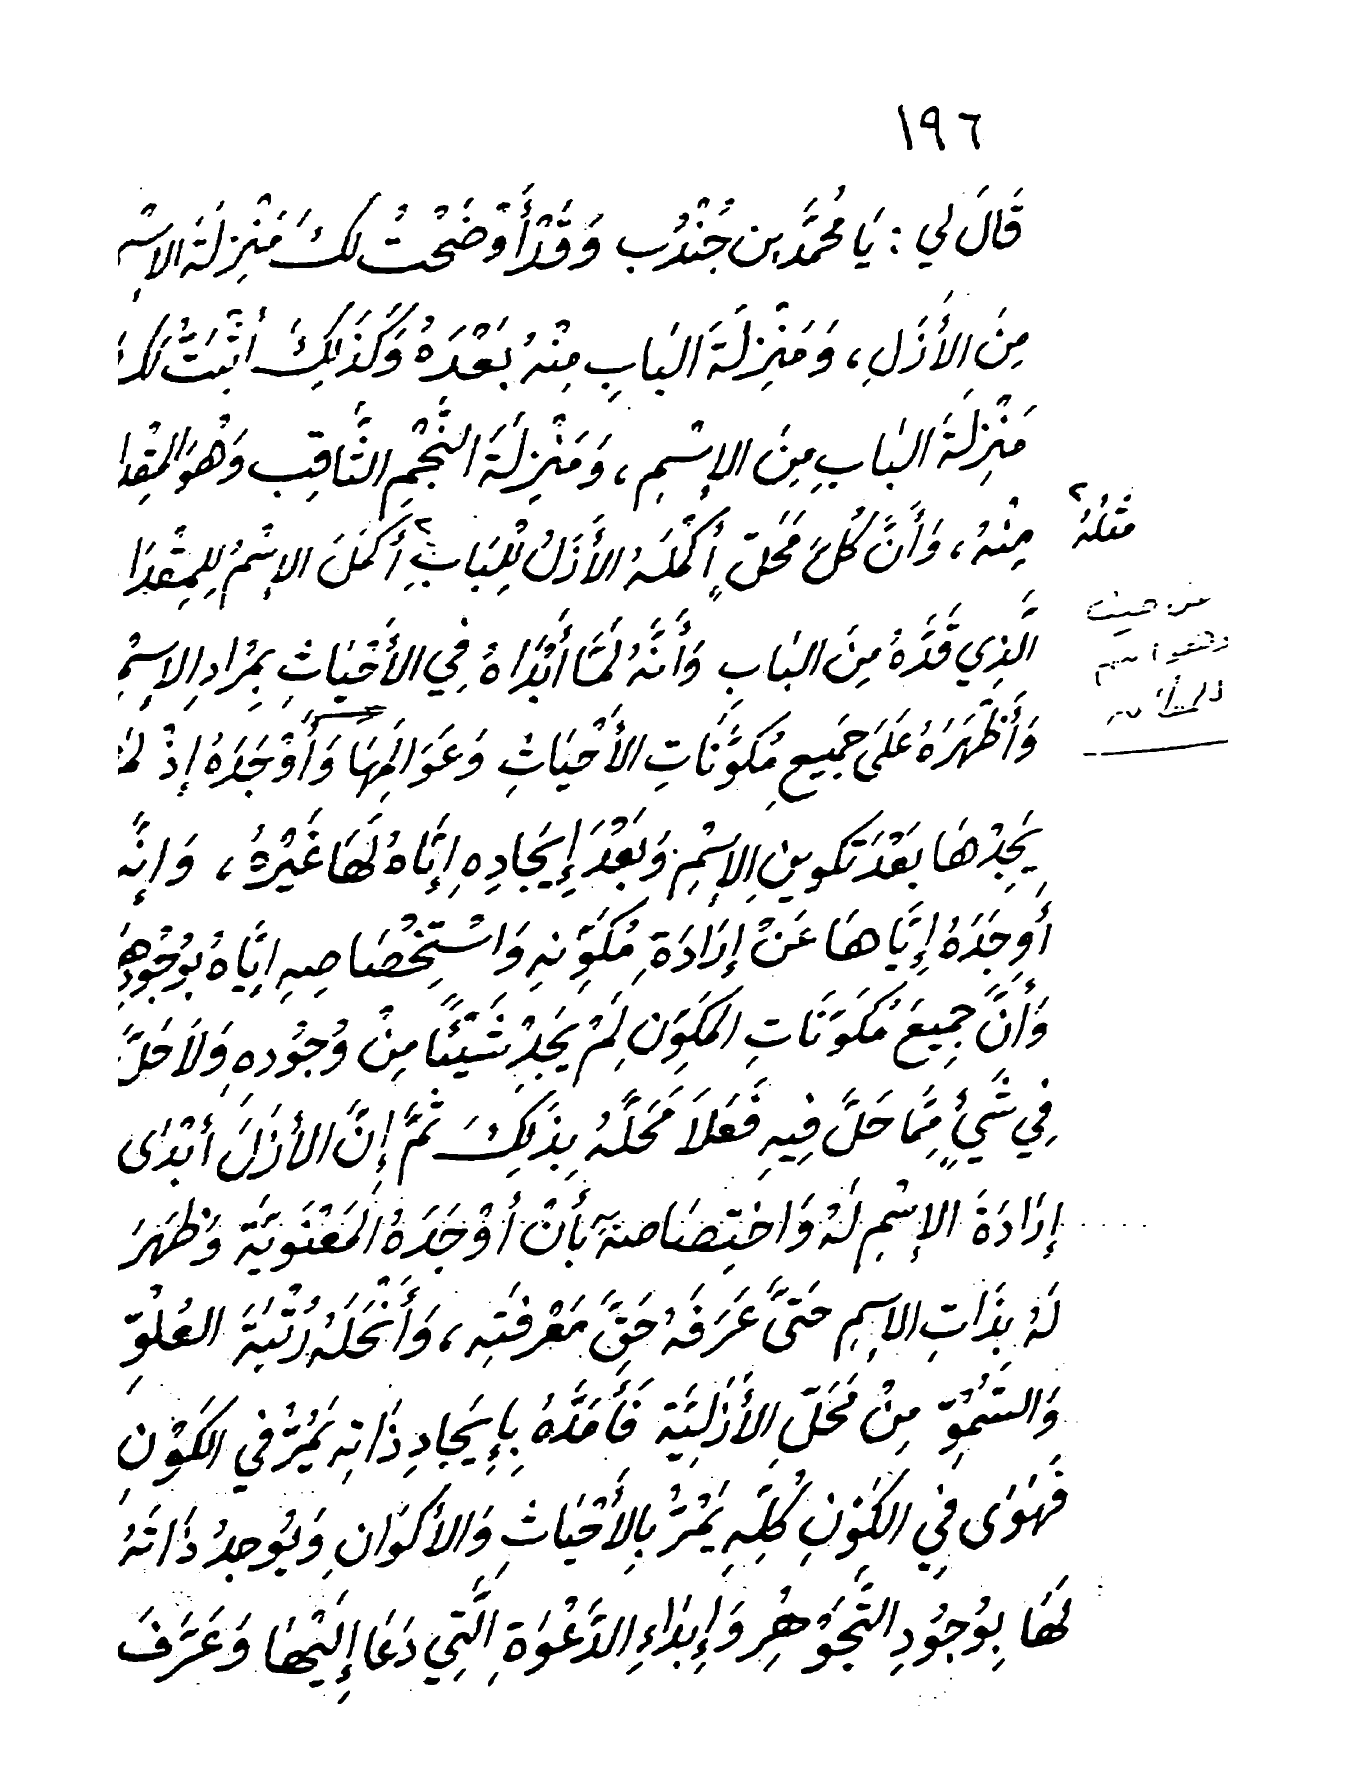 ١٩٦
قَالَ لي : يَا مُحَمَّدَ بن جُنْدُب وَقَدْ أَوْضَحْتُ لَكَ مَنْزِلَةَ الإِسْمِ
مِنَ الأَزَلِ ، وَمَنْزِلَةَ البَابِ مِنْهُ بَعْدَهُ وَكَذَلِكَ أثْبَتُّ لَكَ
مَنْزِلَةَ البَابِ مِنَ الإِسْمِ ، وَمَنْزِلَةَ النَّجْمِ الثَّاقِب وَهُوَ المِقْدَا
مِنْهُ ، وَأَنَّ كُلَّ مَحَلٍّ أَكْمَلَهُ الأَزَلُ لِلْبَابِ أَكمَلَ الإِسْمُ لِلمِقْدَا
مَثَلُهُ
الَّذِي قَدَّهُ مِنَ البَابِ وَأَنَّهُ لَمَّا أَبْدَاهُ فِي الأَحْيَاثِ بِمُرَادِ الإِسْمِ
وَأَظْهَرَهُ عَلَى جَمِيعِ مُكَوَّنَاتِ الأَحْيَاثِ وَعَوَالِمِهَا وَأَوْجَدَهُ إِذْ لَمْ
يَجِدْهَا بَعْدَ تَكوينِ الإِسْمِ وَبَعْدَ إِيجَادِهِ إِيَّاهُ لَهَا غَيْرُهُ ، وَإنَّه
أَوجَدَهُ إِيَّاهَا عَنْ إِرَادَةِ مُكَوِّنِهِ وَاسْتِخْصَاصِهِ ايَّاهُ بِوُجُودِهَا
وَأَنَّ جَمِيعَ مُكَوَنَاتِ المكَوَنِ لَمْ يَجِدْ شَيْئًا مِنْ وُجُودِهِ وَلاَ حَلَّ
فِي شَيْءٍ مِمَّا حَلَّ فِيهِ فَعَلاَ مَحَلَّهُ بِذَلِكَ ثُمَّ إِنَّ الأَزَلَ أبْدَى
إِرَادَةَ الإِسْمِ لَهُ وَاختِصَاصهُ بأَنْ أَوْجَدَهُ المَعْنَوِيَّةَ وَظَهَرَ
لَهُ بِذَاتِ الاسِمِ حَتَّى عَرَفَهُ حَقَّ مَعْرِفَتِهِ ، وَأَنْحَلَهُ رُتْبَةَ العُلُوِّ
وَالسُّمُوِّ مِنْ مَحَلِّ الأَزَلِيَّةِ فَأَمَدَّهُ بِإِيجَادِ ذَاتِهِ يَمُرُّ في الكَوْنِ
فَهَوَى فِي الكَوْنِ كُلِّهِ يَمُرُّ بِالأَحْيَاثِ وَالأَكوَانِ وَيُوجِدُ ذَاتَهُ
لَهَا بِوُجُودِ التَّجَوْهُرِ وَإِبدَاءِ الدَّعْوَةِ الَّتِي دَعَا إِلَيْهَا وَعَرَّفَ